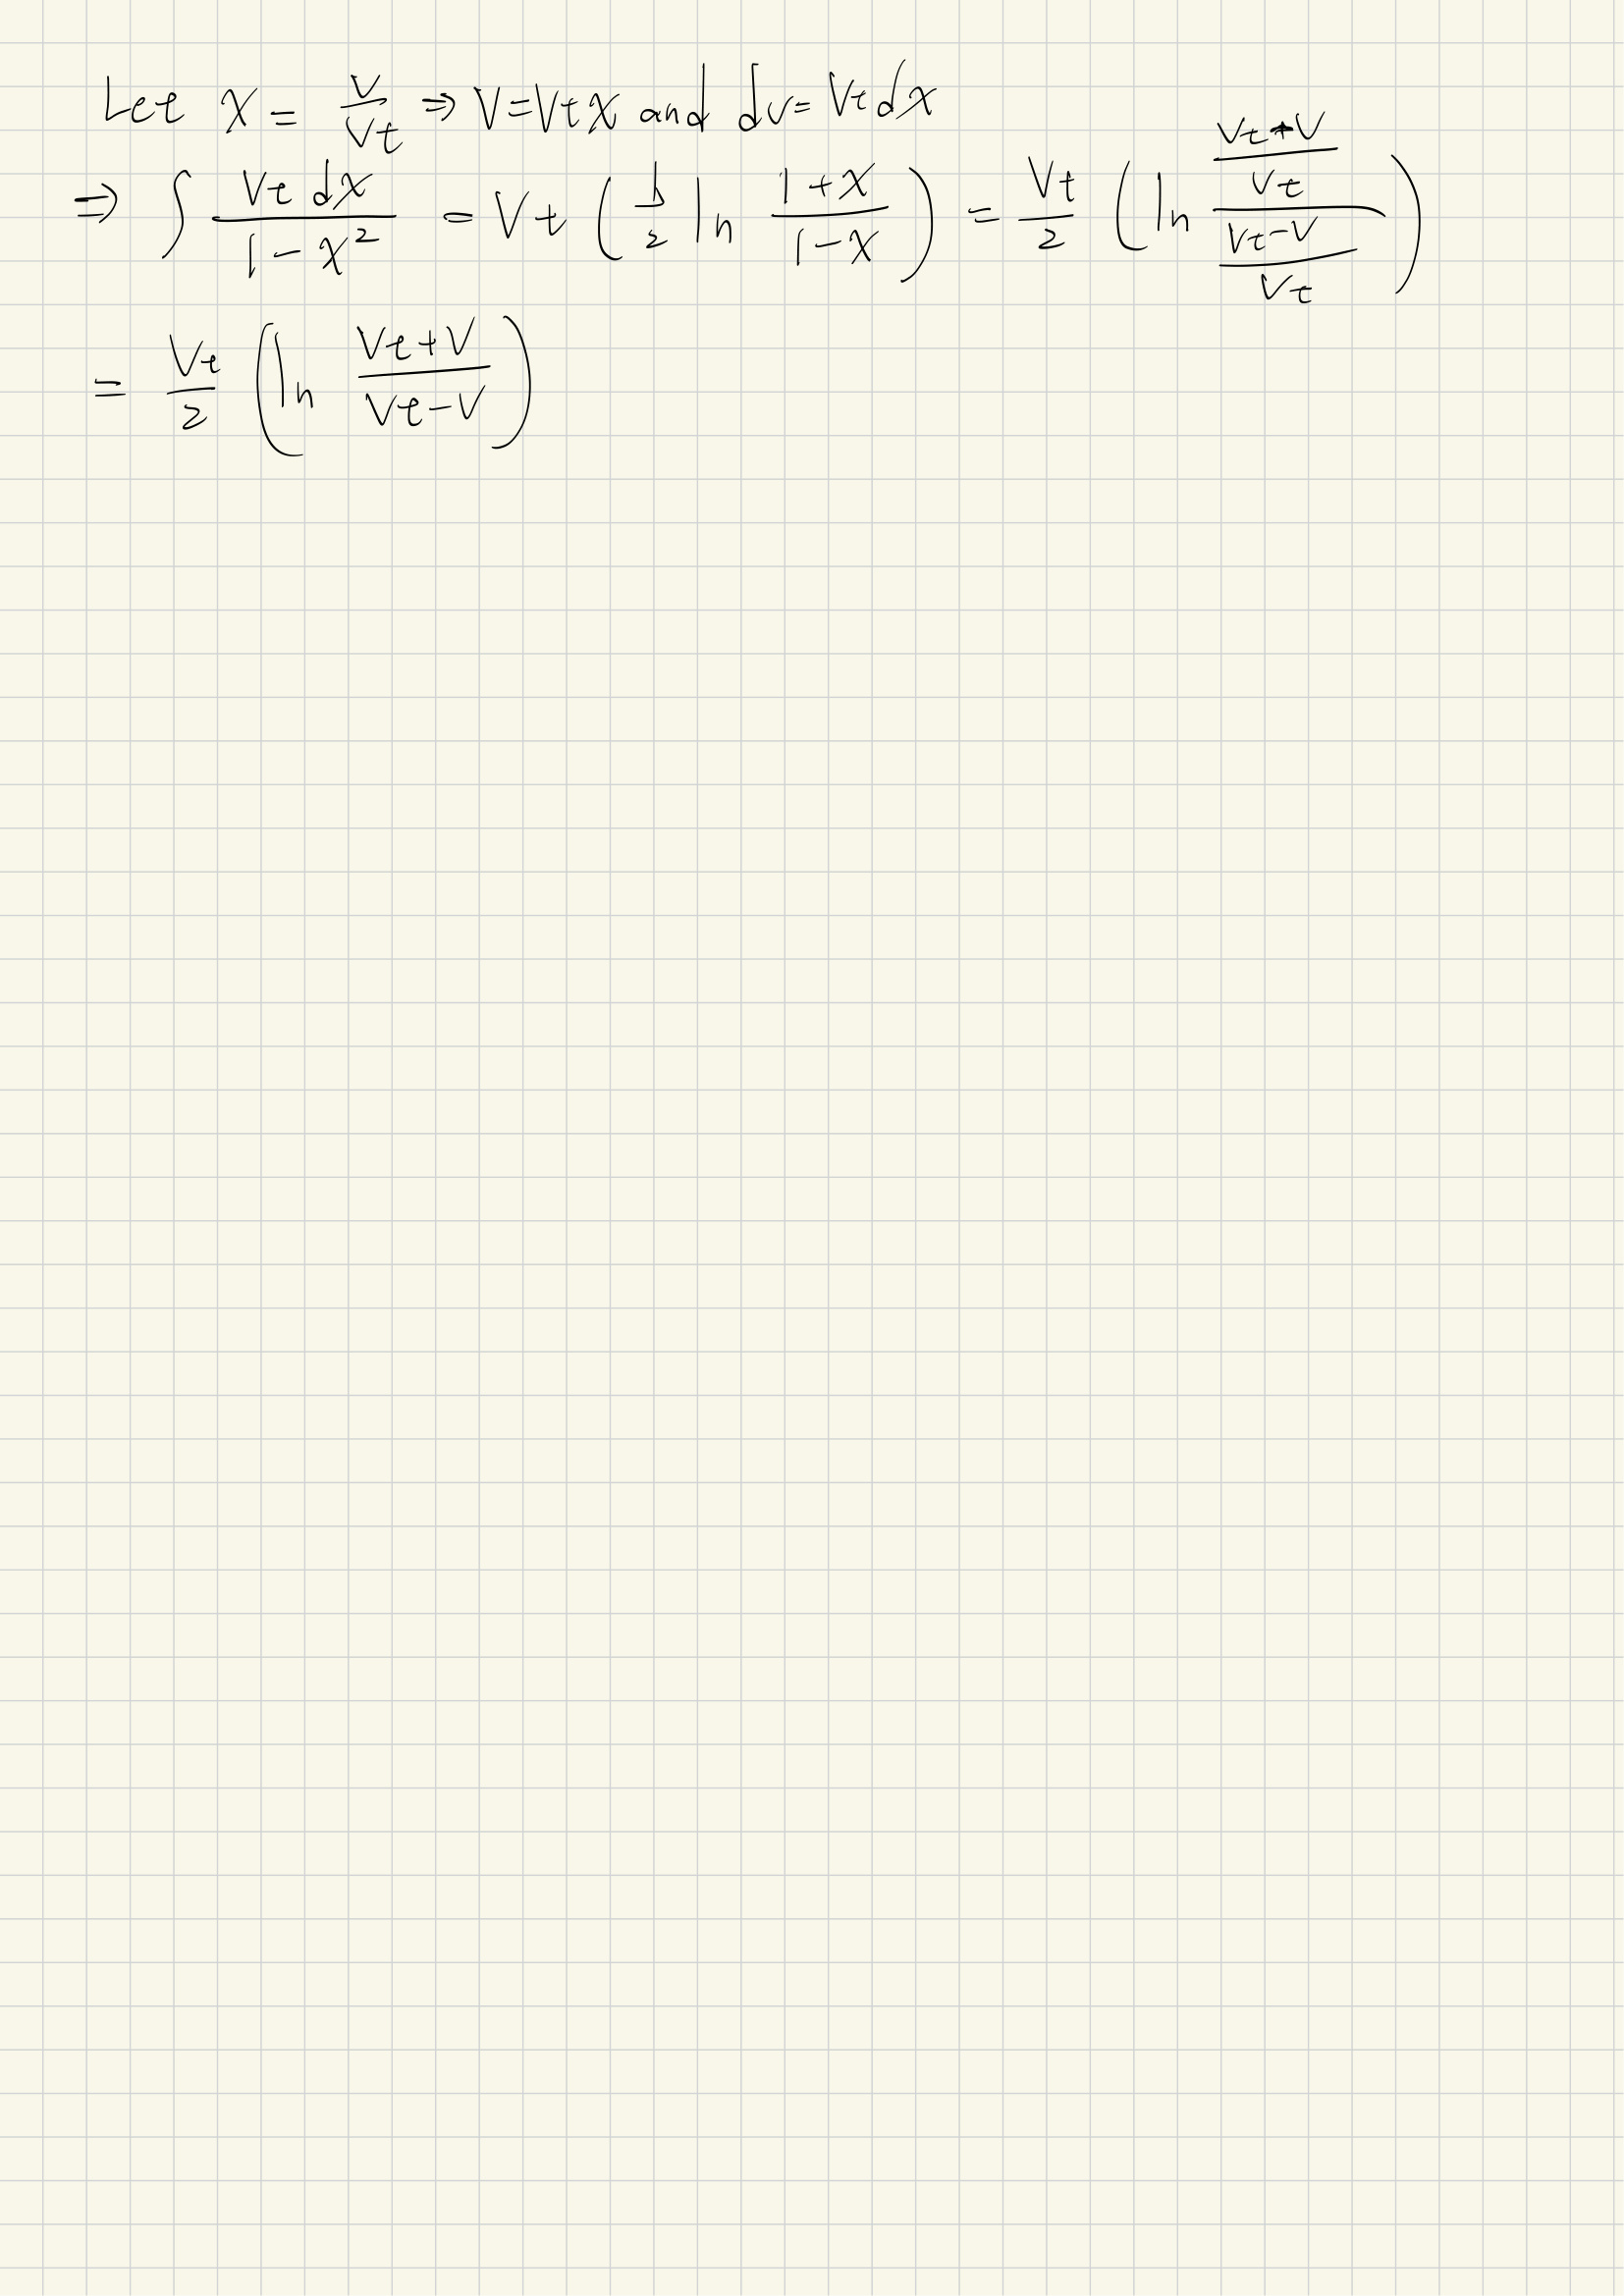 Let x = \frac{v}{v_t} ⇒ v = v_t x and dv = v_t dx
⇒ ∫ \frac{v_t dx}{1 - x^2} = v_t ( \frac{1}{2} ln \frac{1+x}{1-x} ) = \frac{v_t}{2} ( ln \frac{\frac{v_t+v}{v_t}}{\frac{v_t-v}{v_t}} )
= \frac{v_t}{2} ( ln \frac{v_t+v}{v_t-v} )